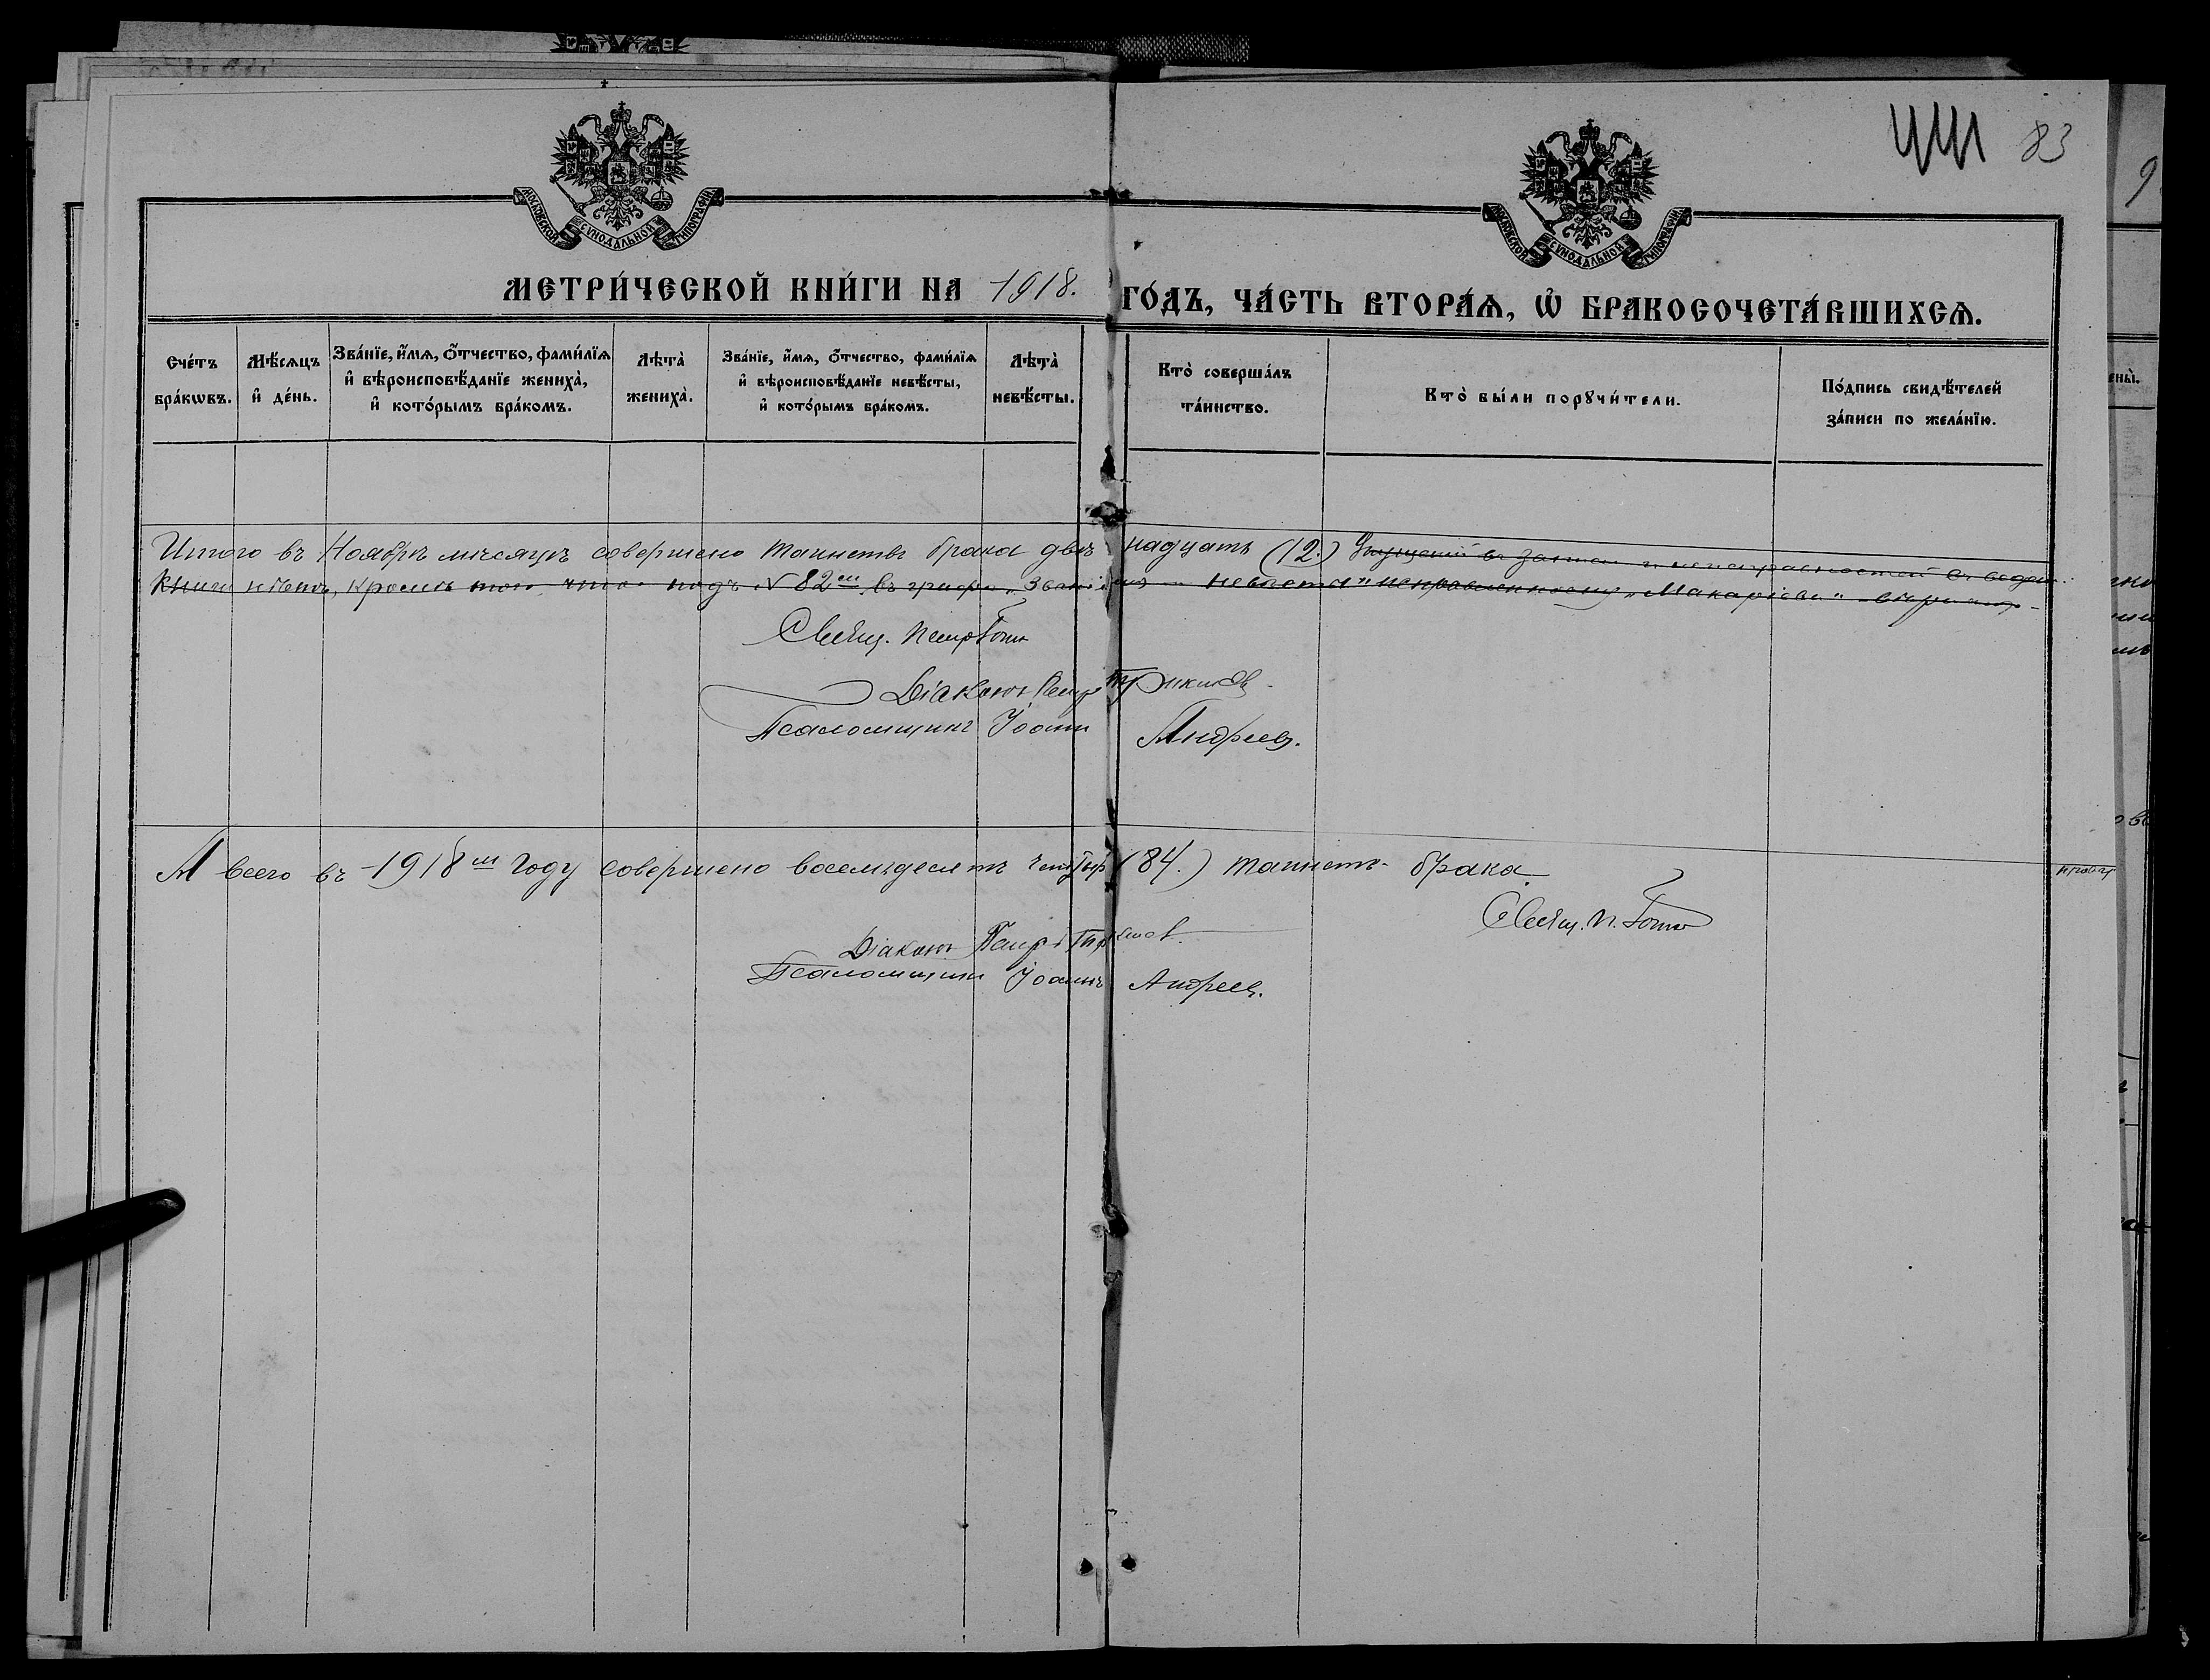 83
9
МОСКОВСКОЙ СѴНОДАЛЬНОЙ ТИПОГРАФІИ
МОСКОВСКОЙ СѴНОДАЛЬНОЙ ТИПОГРАФІИ
МЕТРИ́ЧЕСКОЙ КНИ́ГИ НА 1918. ГО́ДЪ, ЧА́СТЬ ВТОРА́Ѧ, Ѡ҆ БРАКОСОЧЕТА́ВШИХСѦ.
Сче́тъ
бра́кѡвъ.
Мѣ́сяцъ
и҆ де́нь.
Зва́нїе, и҆́мѧ, ѻ҆́тчество, фами́лїѧ
и҆ вѣроисповѣ́данїе жениха̀,
и҆ кото́рымъ бра́комъ.
Лѣта̀
жениха̀.
Зва́нїе, и҆́мѧ, ѻ҆́тчество, фами́лїѧ
и҆ вѣроисповѣ́данїе невѣ́сты,
и҆ кото́рымъ бра́комъ.
Лѣта̀
невѣ́сты.
Кто̀ соверша́лъ
та́инство.
Кто̀ бы́ли порꙋчи́тели.
По́дпись свидѣ́телей
за́писи по жела́нїю.
Итого въ Ноябрѣ мѣсяцѣ совершено таинствъ брака двѣнадцать (12.) въ записи и неисправностей въ
книги нѣтъ, кромѣ того, что подъ № 82м въ графѣ „Званіе невѣсты" исправленному „Макаріева"
Свящ. Петр
Діаконъ
Псаломщикъ Іоаннъ Андреев.
А всего въ 1918м году совершено восемьдесятъ четыр (84.) таинств брака.
Свящ. П.
Діаконъ Петр
Псаломщикъ Іоаннъ Андреев.